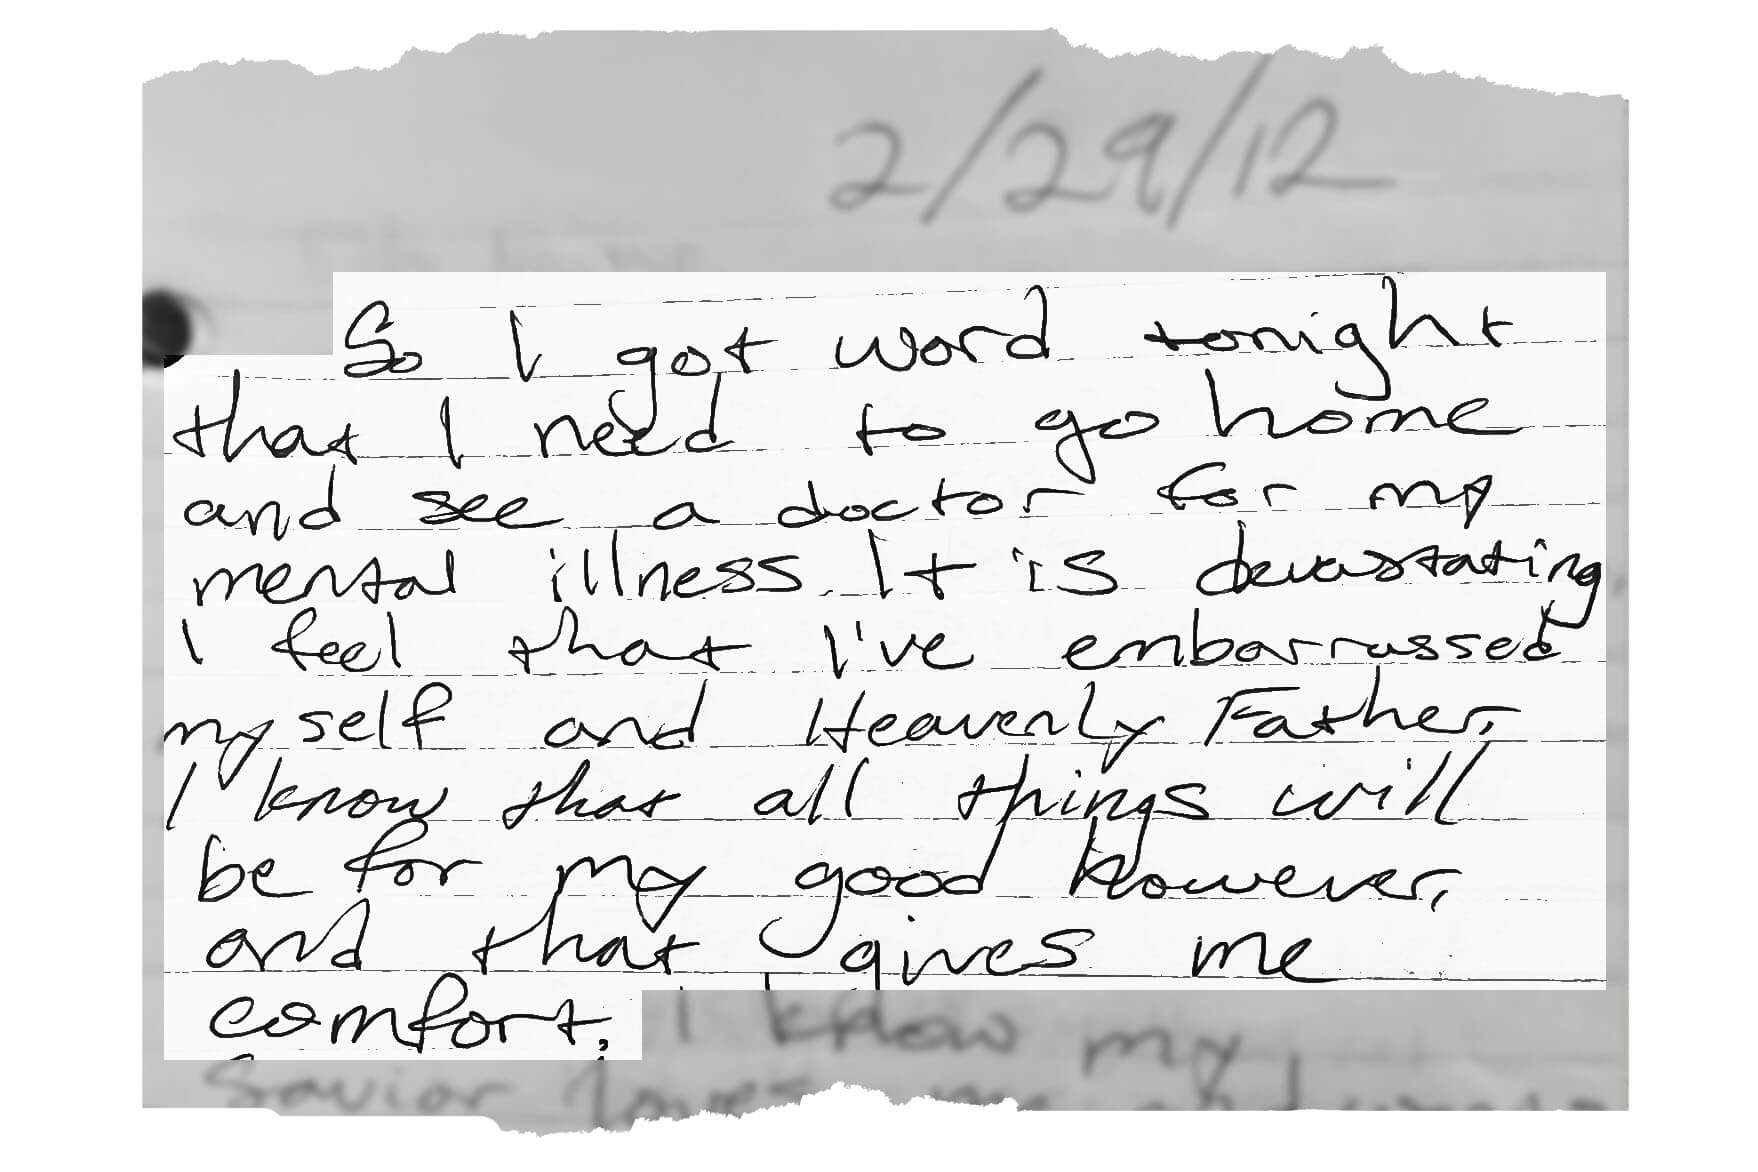 2/29/12
So I got word tonight
that I need to go home
and see a doctor for my
mental illness It is devastating,
I feel that I've embarrassed
myself and Heavenly Father,
I know that all things will
be for my good however,
and that gives me
comfort, I know my
Savior loves me and